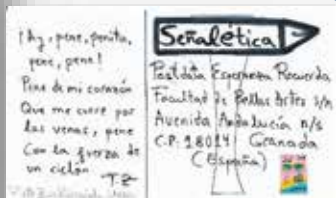 ¡Ay, pena, penita,
pena, pena!
Pena de mi corazón
Que me corre por
las venas, pena
Con la fuerza de
un ciclón
Señalética
Postdata Esperanza Recuerda
Facultad de Bellas Artes S/N
Avenida Andalucía n/s
C.P. 18014 Granada
(España)